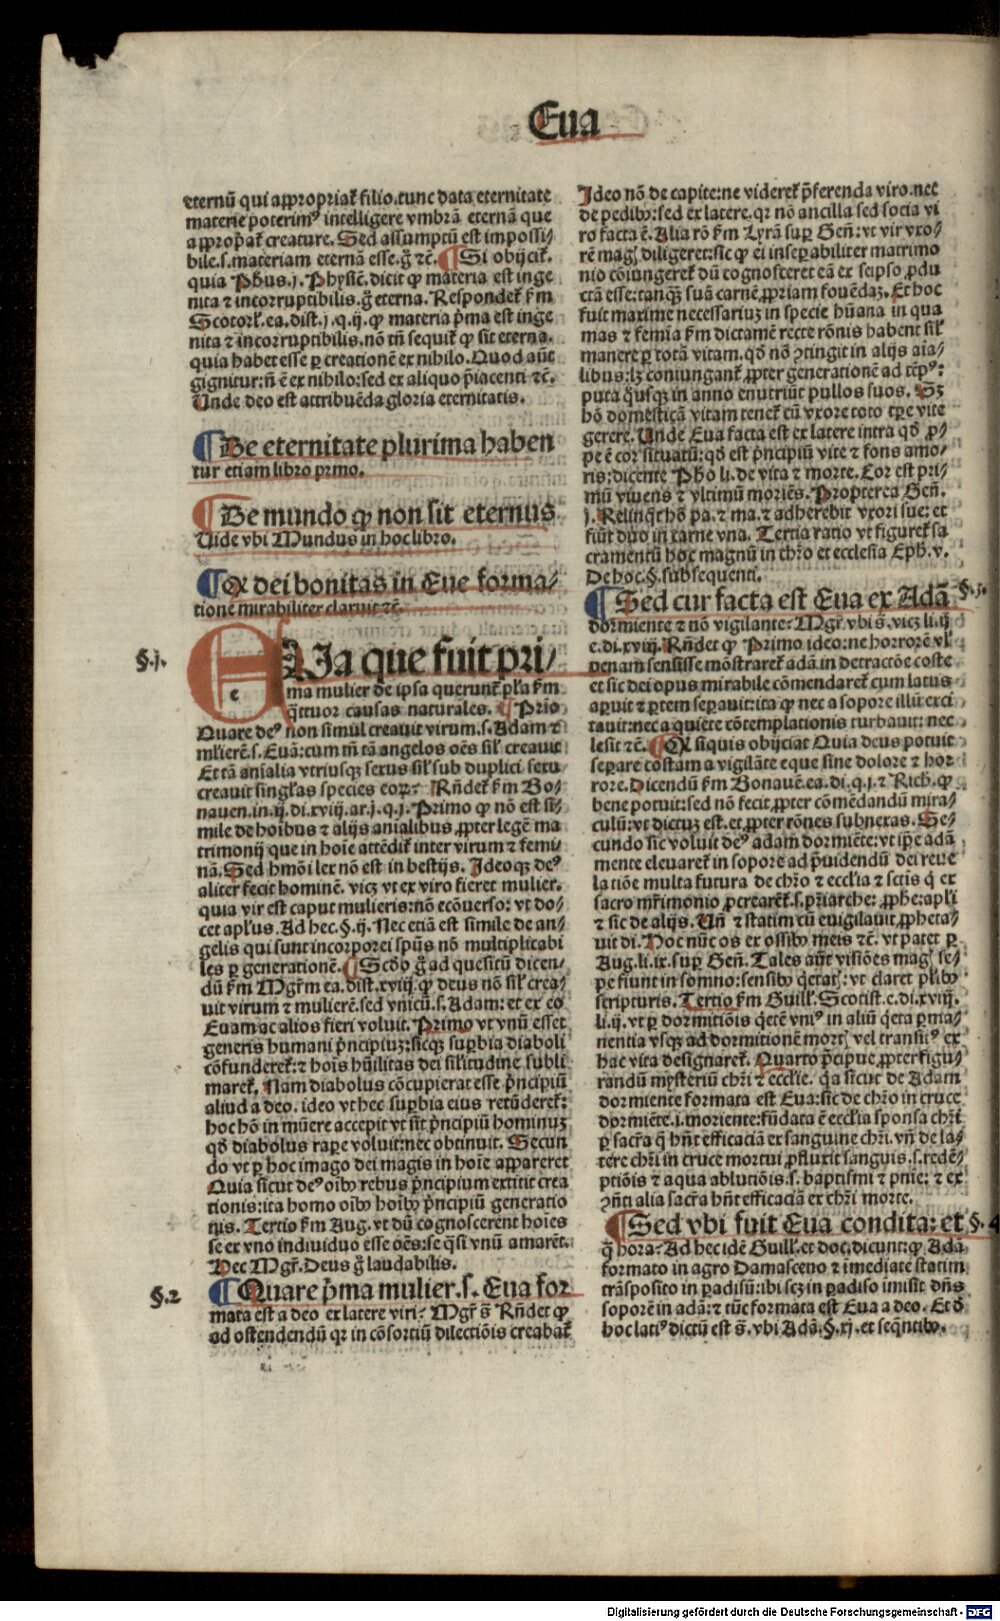 Eua
eternū qui appropriat̄ filio. tunc data eternitate
materie poterimꝰ intelligere vmbrā eternā que
appropat̄ creature. Sed assumptū est impossi⸗
bile. s. materiam eternā esse. ḡ ⁊c̄. ¶ Si obijcit̄.
quia Phus. j. Physic̄. dicit ꝙ materia est inge
nita ⁊ incorruptibilis. ḡ eterna. Respondet̄ s̄m
Scotorl̄. ea. dist. j. q. ij. ꝙ materia p̄ma est inge
nita ⁊ incorruptibilis. nō tn̄ sequit̄ ꝙ sit eterna.
quia habet esse ꝑ creationē ex nihilo. Quod aūt
gignitur: n̄ ē ex nihilo: sed ex aliquo p̄iacenti ⁊c̄.
Unde deo est attribuēda gloria eternitatis.
¶ De eternitate plurima haben
tur etiam libro prmo.
¶ De mundo ꝙ non sit eternus
Uide vbi Mundus in hoc libro.
¶ Qꝙ dei bonitas in Eue forma⸗
tionē mirabiliter claruit ⁊c̄.
§. j.
e
EUa que fuit pri⸗
ma mulier de ipsa querunt̄ pl̄a s̄m
q̄ttuor causas naturales. ¶ Prīo
Quare deꝰ non simul creauit virum. s. Adam ⁊
ml̄ierē. s. Euā: cum tn̄ tā angelos oēs sil̄ creauit
Et tā anīalia vtriusqꝫ sexus sil̄ sub duplici sexu
creauit singl̄as species eoꝝ? Rn̄det̄ s̄m Bo⸗
nauen. in. ij. di. xviij. ar. j. q. j. Primo ꝙ nō est si⸗
mile de hoībus ⁊ alijs anīalibus ꝓpter legē ma
trimonij que in hoīe attēdit̄ inter virum ⁊ femi⸗
nā. Sed hmōi lex nō est in bestijs. Ideoqꝫ deꝰ
aliter fecit hominē. vicꝫ vt ex viro fieret mulier.
quia vir est caput mulieris: nō ecōuerso: vt do⸗
cet apl̄us. Ad hec. §. ij. Nec etiā est simile de an⸗
gelis qui sunt incorporei spūs nō multiplicabi
les ꝑ generationē. ¶ Scd̄o ḡ ad quesitū dicen⸗
dū s̄m Mgr̄m ea. dist. xviij. ꝙ deus nō sil̄ crea⸗
uit virum ⁊ mulierē. sed vnicū. s. Adam: et ex eo
Euam ac alios fieri voluit. Primo vt vnū esset
generis humani p̄ncipiuꝫ: sicqꝫ suꝑbia diaboli
cōfunderet̄: ⁊ hoīs hūilitas dei sil̄itudine subli
maret̄. Nam diabolus cōcupierat esse p̄ncipiū
aliud a deo. ideo vt hec suꝑbia eius retūderet̄:
hoc hō in mūere accepit vt sit p̄ncipiū hominuꝫ
qd̄ diabolus raꝑe voluit: nec obtinuit. Secun
do vt ꝑ hoc imago dei magis in hoīe appareret
Quia sicut deꝰ oībꝰ rebus p̄ncipium extitit crea
tionis: ita homo oībꝰ hoībꝰ p̄ncipiū generatio
nis. Tertio s̄m Aug. vt dū cognoscerent hoīes
se ex vno indiuiduo esse oēs: se q̄si vnū amarēt.
Hec Mgr̄. Deus ḡ laudabilis.
§. 2
¶ Quare p̄ma mulier. s. Eua for
mata est a deo ex latere viri? Mgr̄ s̄ Rn̄det ꝙ
ad ostendendū qꝛ in cōsortiū dilectiōis creabat̄
Ideo nō de capite: ne videret̄ p̄ferenda viro. nec
de pedibꝰ: sed ex latere. qꝛ nō ancilla sed socia vi
ro facta ē. Alia rō s̄m Lyrā suꝑ Gen̄: vt vir vxo⸗
rē magꝭ diligeret: sic ꝙ ei inseꝑabiliter matrimo
nio cōiungeret̄ dū cognosceret eā ex seipso ꝓdu
ctā esse: tanqꝫ suā carnē ꝓpriam fouēdaꝫ. Et hoc
fuit maxime necessariuꝫ in specie hūana in qua
mas ⁊ femīa s̄m dictamē recte rōnis habent sil̄
manere ꝑ totā vitam. qd̄ nō ↄtingit in alijs aīa⸗
libus: lꝫ coniungant̄ ꝓpter generationē ad tēpꝰ:
puta q̄usqꝫ in anno enutriūt pullos suos. Sꝫ
hō domesticā vitam tenet̄ cū vxore toto tꝑe vite
gerere. Unde Eua facta est ex latere intra qd̄ ꝓ⸗
pe ē cor situatū: qd̄ est p̄ncipiū vite ⁊ fons amo⸗
ris: dicente Pho li. de vita ⁊ morte. Cor est pri⸗
mū viuens ⁊ vltimū moriēs. Propterea Gen̄.
j. Relinq̄t hō pa. ⁊ ma. ⁊ adherebit vxori sue: et
fiūt duo in carne vna. Tertia ratio vt figuret̄ sa
cramentū hoc magnū in chr̄o et ecclesia Eph. v.
De hoc. §. subsequenti.
¶ Sed cur facta est Eua ex Adā
§. 3.
dormiente ⁊ nō vigilante? Mgr̄ vbi s̄. vicꝫ li. ij
e. di. xviij. Rn̄det ꝙ Primo ideo: ne horrorē vl̄
penam sensisse mōstraret̄ adā in detractōe coste
et sic dei opus mirabile cōmendaret̄ cum latus
aperuit ⁊ ꝑtem seꝑauit: ita ꝙ nec a sopore illū exci
tauit: nec a quiete cōtemplationis turbauit: nec
lesit ⁊c̄. ¶ Qꝙ siquis obijciat Quia deus potuit
seꝑare costam a vigilāte eque sine dolore ⁊ hor
rore. Dicendū s̄m Bonauē. ea. di. q. j. ⁊ Rich. ꝙ
bene potuit: sed nō fecit ꝓpter cōmēdandū mira⸗
culū: vt dictuꝫ est. et ꝓpter rōnes subnexas. Se⸗
cundo sic voluit deꝰ adam dormiēte: vt ip̄e adā
mente eleuaret̄ in sopore ad p̄uidendū dei reue
latiōe multa futura de chr̄o ⁊ eccl̄ia ⁊ sctīs q̄ ex
sacro mr̄imonio ꝓcrearet̄. s. pr̄iarche: ꝓphe: apl̄i
⁊ sic de alijs. Un̄ ⁊ statim cū euigilauit ꝓpheta⸗
uit di. Hoc nūc os ex ossibꝰ meis ⁊c̄. vt patet ꝑ
Aug. li. ix. suꝑ Gen̄. Tales aūt visiōes magꝭ se⸗
pe fiunt in somno: sensibꝰ q̄etatꝭ: vt claret pl̄ibꝰ
scripturis. Tertio s̄m Guill̄. Scotist. e. di. xviij.
li. ij. vt ꝑ dormitiōis q̄etē vniꝰ in aliū q̄eta ꝑma⸗
nentia vsqꝫ ad dormitionē mortꝭ vel transitꝰ ex
hac vita designaret̄. Quarto p̄cipue ꝓpter figu⸗
randū mysteriū chr̄i ⁊ eccl̄ie. q̄a sicut de Adam
dormiente formata est Eua: sic de chr̄o in cruce
dormiēte. i. moriente: fūdata ē eccl̄ia sponsa chr̄i
ꝑ sacr̄a q̄ hn̄t efficaciā ex sanguine chr̄i. vn̄ de la⸗
tere chr̄i in cruce mortui ꝓfluxit sanguis. s. redē⸗
ptiōis ⁊ aqua ablutiōis. s. baptismi ⁊ pnīe: ⁊ ex
ↄn̄ti alia sacr̄a hn̄t efficaciā ex chr̄i morte.
¶ Sed vbi fuit Eua condita: et
§. 4
q̄ hora? Ad hec idē Guill̄. et doc. dicunt: ꝙ Adā
formato in agro Damasceno ⁊ imediate statim
trāsposito in ꝑadisū: ibi scꝫ in ꝑadiso imisit dn̄s
soporē in adā: ⁊ tūc formata est Eua a deo. Et d̄
hoc latiꝰ dictū est s̄. vbi Adā. §. xj. et seq̄ntibꝰ.
Digitalisierung gefördert durch die Deutsche Forschungsgemeinschaft - DFG